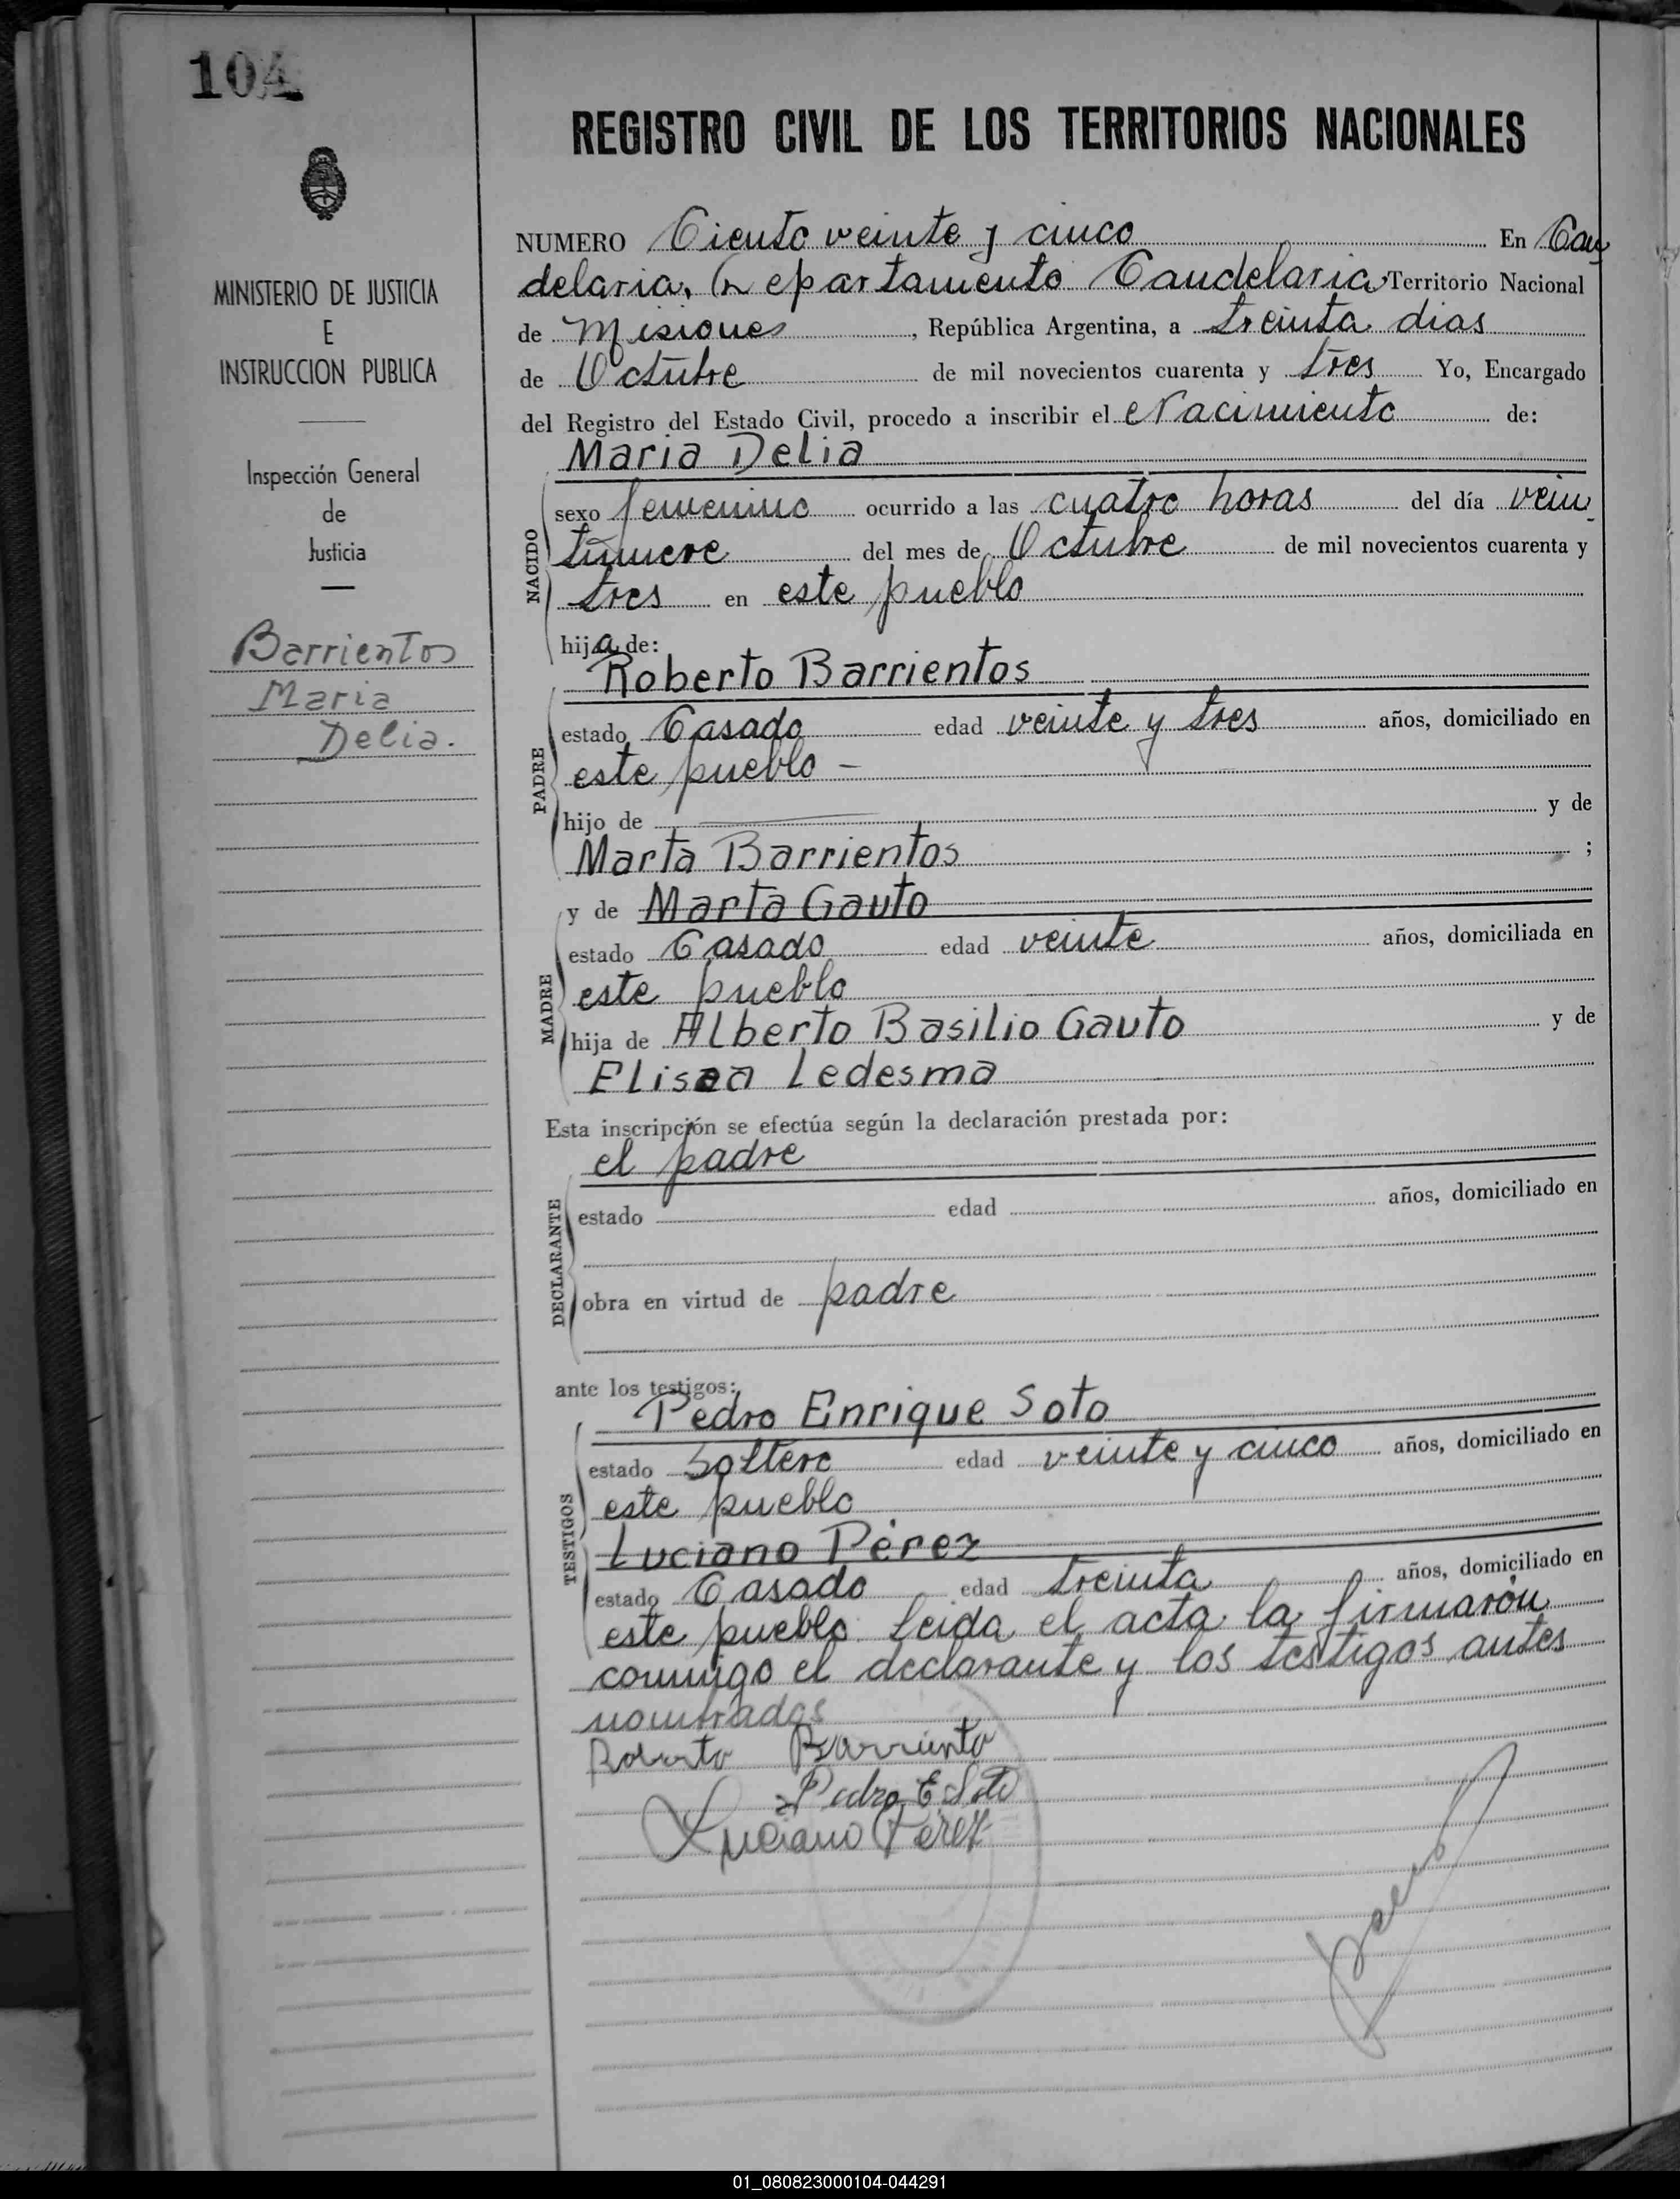 104
REGISTRO CIVIL DE LOS TERRITORIOS NACIONALES
MINISTERIO DE JUSTICIA
E
INSTRUCCION PUBLICA
Inspección General
de
Justicia
Barrientos
Maria
Delia.
NUMERO Ciento veinte y cinco En Can
delaria, Departamento Candelaria Territorio Nacional
de Misiones, República Argentina, a treinta dias
de Octubre de mil novecientos cuarenta y tres Yo, Encargado
del Registro del Estado Civil, procedo a inscribir el Nacimiento de:
Maria Delia
NACIDO
sexo femenino ocurrido a las cuatro horas del día vein
tinueve del mes de Octubre de mil novecientos cuarenta y
tres en este pueblo
hija de:
Roberto Barrientos
PADRE
estado Casado edad veinte y tres años, domiciliado en
este pueblo –
hijo de y de
Marta Barrientos ;
y de Marta Gauto
MADRE
estado Casado edad veinte años, domiciliada en
este pueblo
hija de Alberto Basilio Gauto y de
Ledesma
Esta inscripción se efectúa según la declaración prestada por:
el padre
DECLARANTE
estado edad años, domiciliado en
obra en virtud de padre
ante los testigos:
Pedro Enrique Soto
TESTIGOS
estado Soltero edad veinte y cinco años, domiciliado en
este pueblo
Luciano Pérez
estado Casado edad treinta años, domiciliado en
este pueblo. Leida el acta la firmarón
conmigo el declarante y los testigos antes
nombrados
Roberto Barriento
Pedro E. Soto
Luciano Pérez
01_080823000104-044291